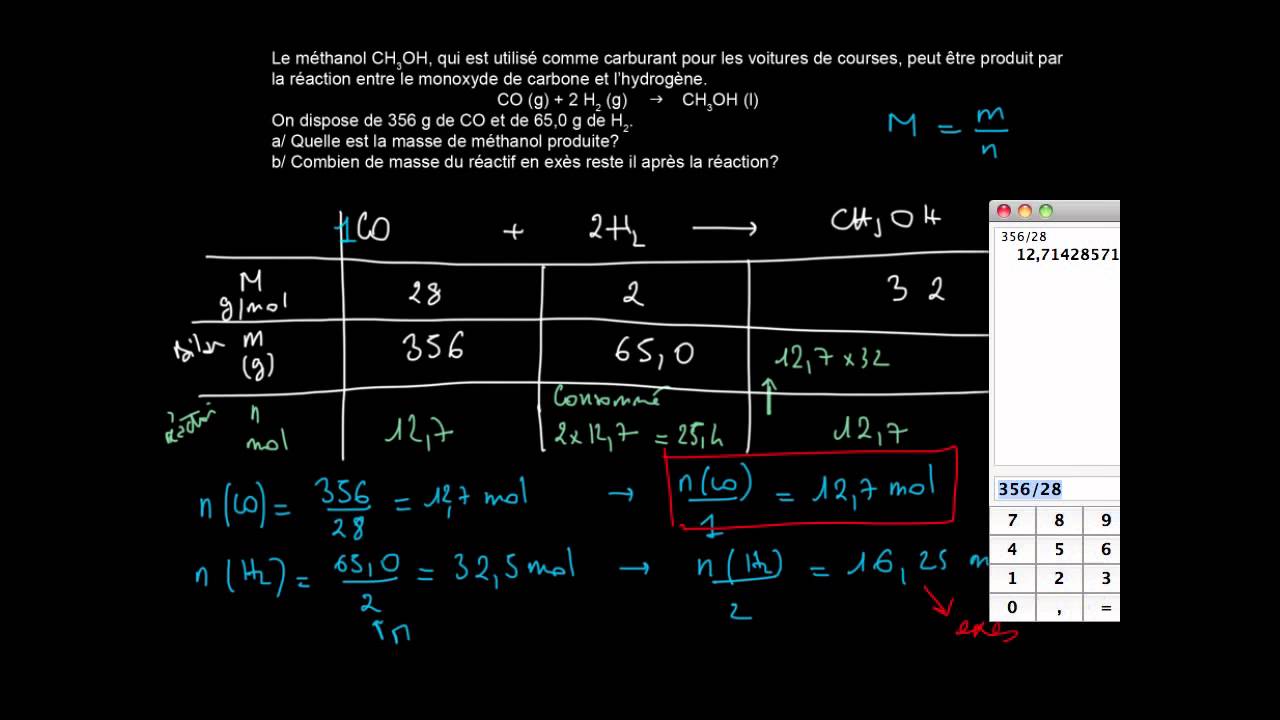 Le méthanol CH3OH, qui est utilisé comme carburant pour les voitures de courses, peut être produit par
la réaction entre le monoxyde de carbone et l'hydrogène.
CO (g) + 2 H2 (g) → CH3OH (l)
On dispose de 356 g de CO et de 65,0 g de H2.
a/ Quelle est la masse de méthanol produite?
b/ Combien de masse du réactif en exès reste il après la réaction?
M = m/n
1CO + 2H2 → CH3OH
M g/mol 28 2 32
m (g) 356 65,0 12,7 x 32
Consommé
n mol 12,7 2x12,7 = 25,4 12,7
n(CO) = 356/28 = 12,7 mol → n(CO)/1 = 12,7 mol
n(H2) = 65,0/2 = 32,5 mol → n(H2)/2 = 16,25 m
n
exes
356/28
12,71428571
356/28
7 8 9
4 5 6
1 2 3
0 , =